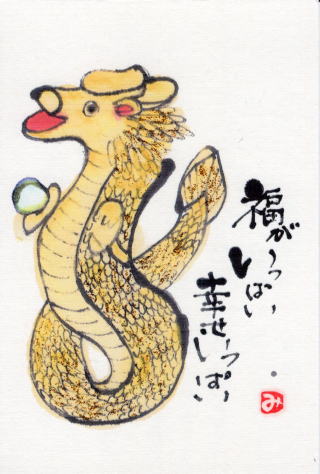 福が
いっぱい
幸せいっぱい
み